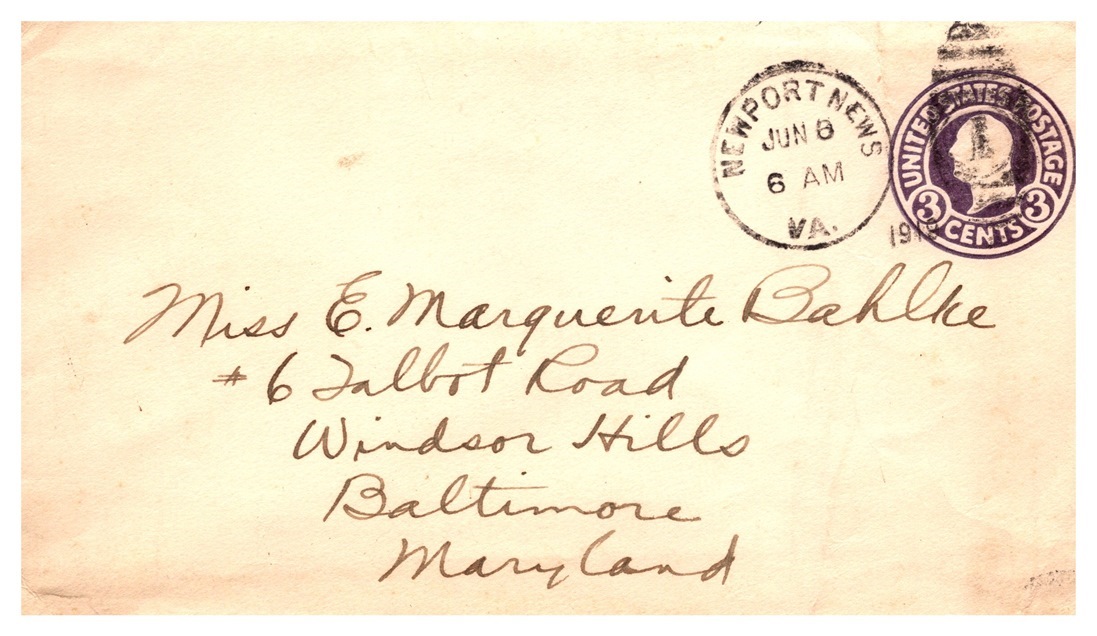 NEWPORT NEWS
JUN 8
6 AM
VA.
UNITED STATES POSTAGE
3 CENTS 3
Miss E. Marguerite Bahlke
# 6 Talbot Road
Windsor Hills
Baltimore
Maryland